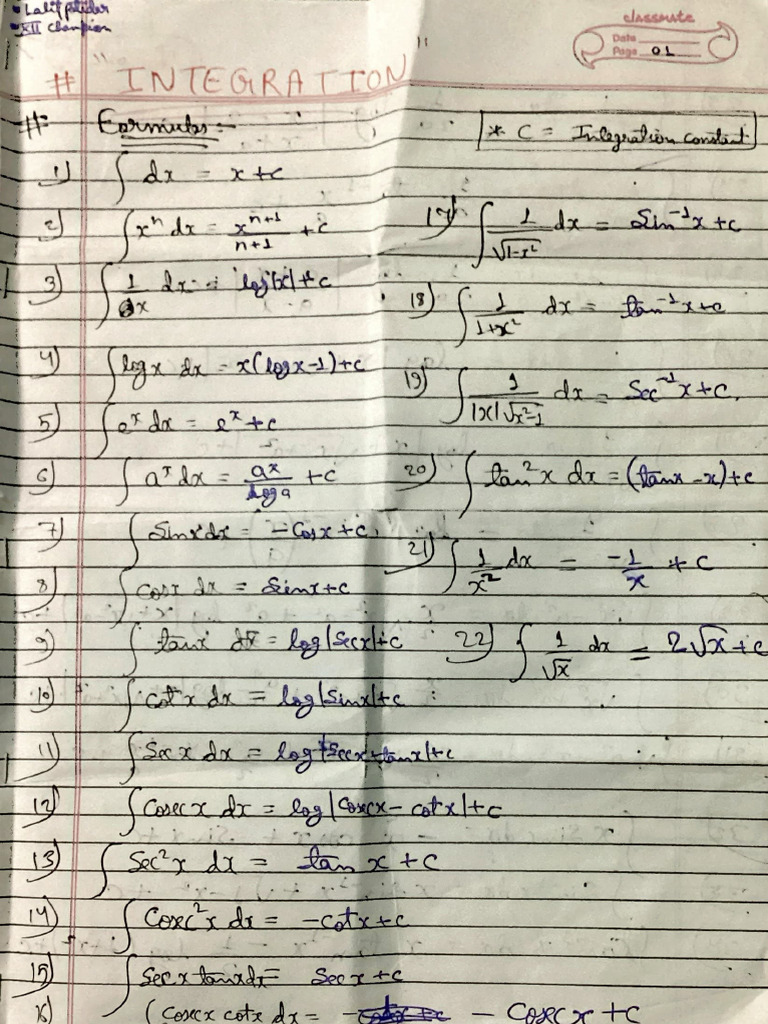 • Lalit patidar
• XII Champion
classmate
Date
Page 01
# " INTEGRATION "
# Formulas :-
* C = Integration constant
1) ∫ dx = x + c
2) ∫ xⁿ dx = xⁿ⁺¹/n+1 + c
3) ∫ 1/x dx = log|x| + c
4) ∫ log x dx = x(log x - 1) + c
5) ∫ eˣ dx = eˣ + c
6) ∫ aˣ dx = aˣ/log a + c
7) ∫ Sinx dx = -Cosx + c
8) ∫ Cosx dx = Sinx + c
9) ∫ tanx dx = log|Secx| + c
10) ∫ cotx dx = log|Sinx| + c
11) ∫ Secx dx = log|Secx + tanx| + c
12) ∫ Cosecx dx = log|Cosecx - cotx| + c
13) ∫ Sec²x dx = tan x + c
14) ∫ Cosec²x dx = -cotx + c
15) ∫ Secx tanx dx = Secx + c
16) ∫ Cosecx cotx dx = - Cosecx + c
17) ∫ 1/√1-x² dx = Sin⁻¹x + c
18) ∫ 1/1+x² dx = tan⁻¹x + c
19) ∫ 1/|x|√x²-1 dx = Sec⁻¹x + c.
20) ∫ tan²x dx = (tanx - x) + c
21) ∫ 1/x² dx = -1/x + c
22) ∫ 1/√x dx = 2√x + c